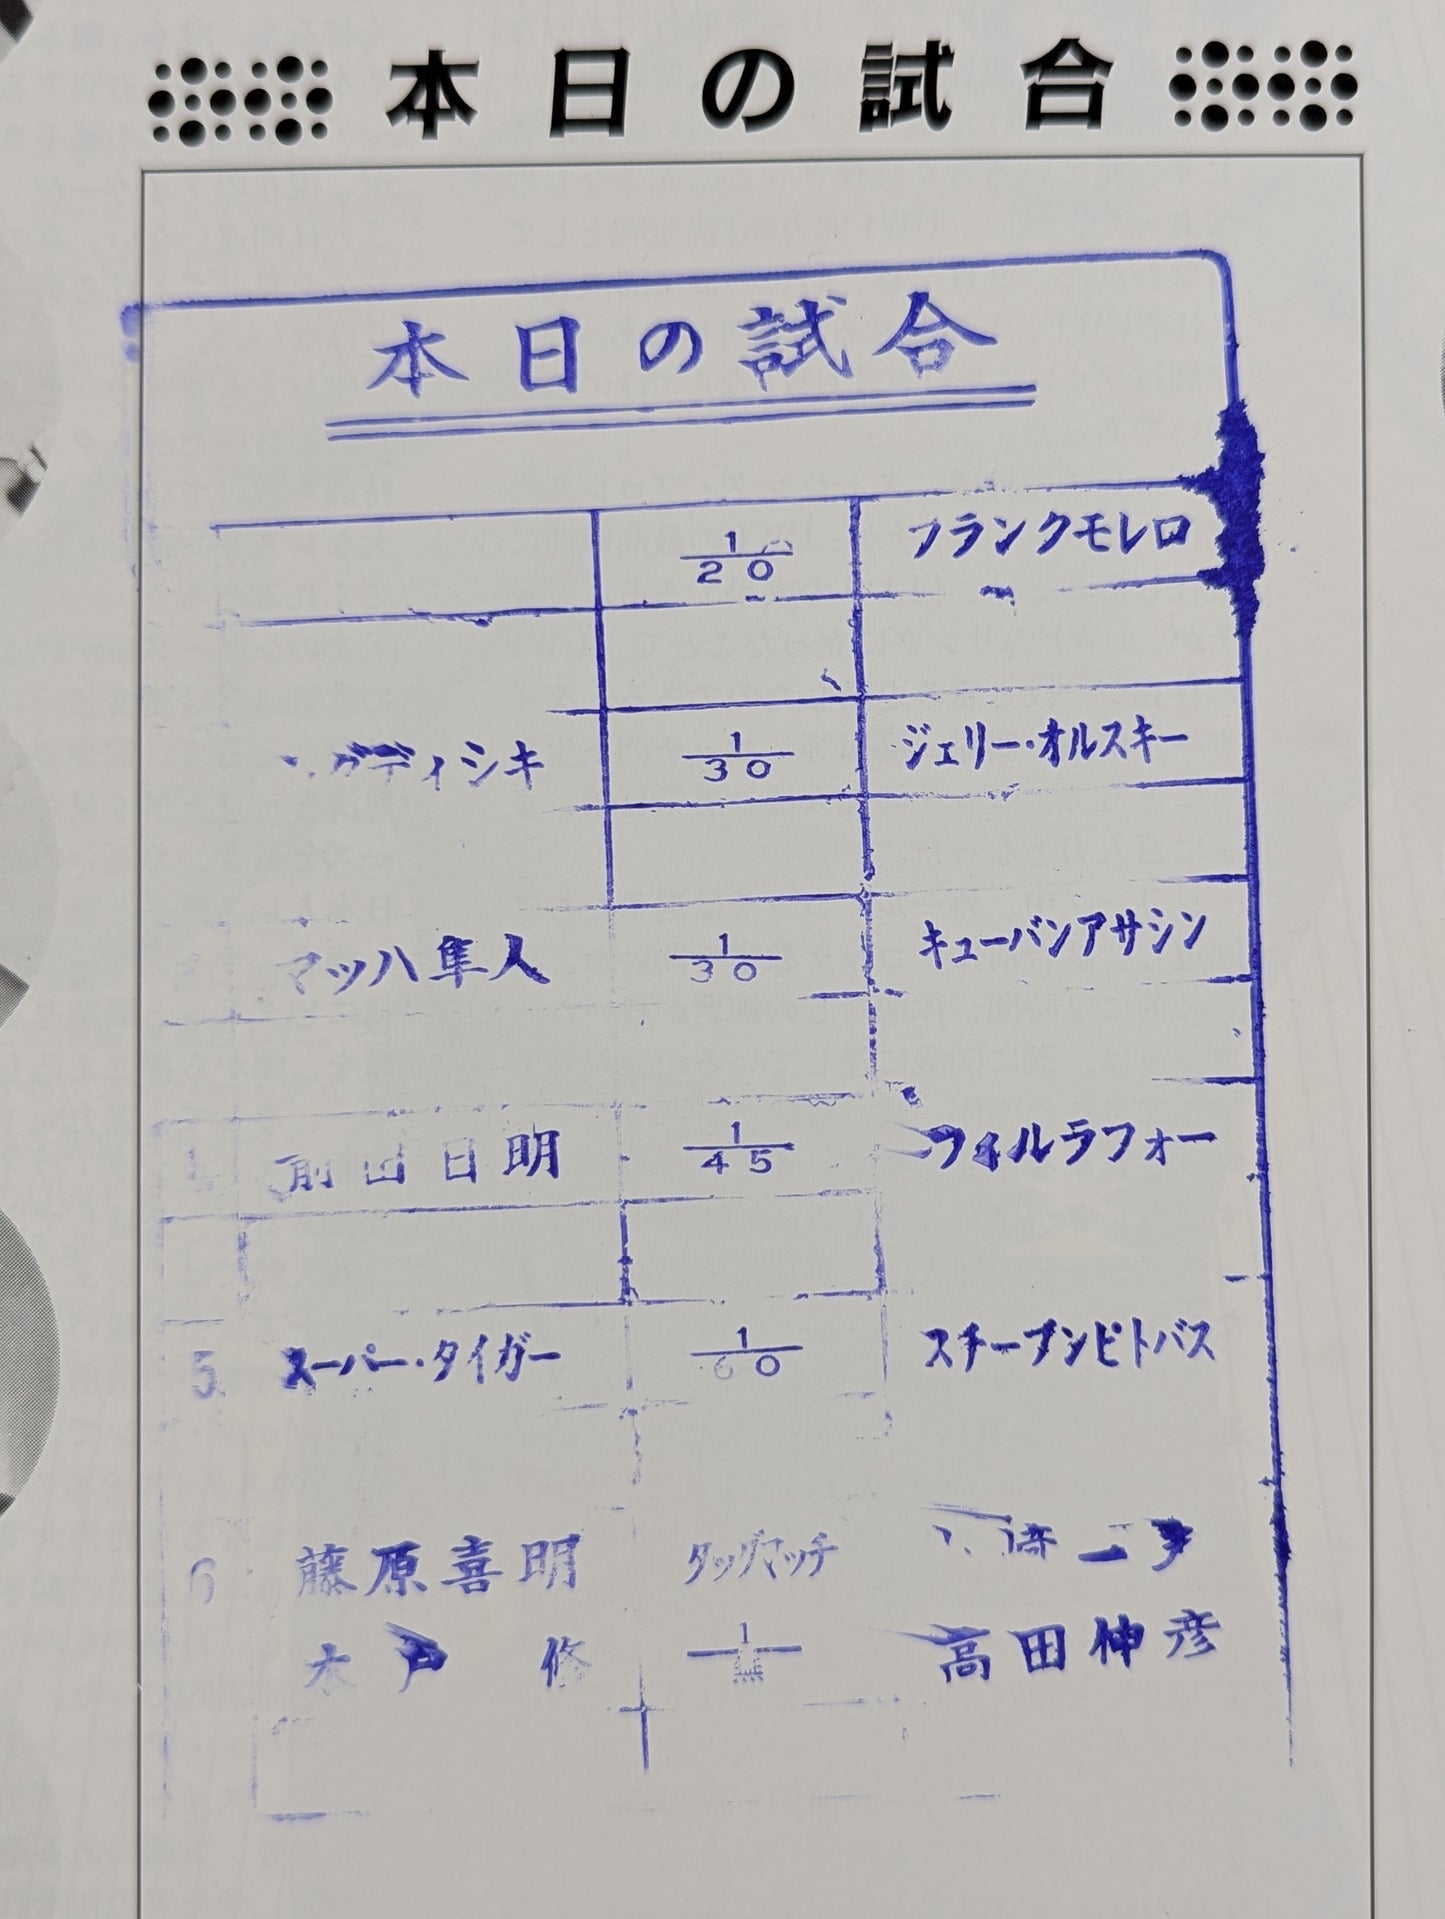 本日の試合
本日の試合
1/20 フランクモレロ
ディシキ 1/30 ジェリー・オルスキー
マッハ隼人 1/30 キューバンアサシン
前田日明 1/45 フィルラフォー
5 スーパー・タイガー 1/60 スチーブンピトバス
6 藤原喜明 タッグマッチ
木戸 修 1/無 高田伸彦